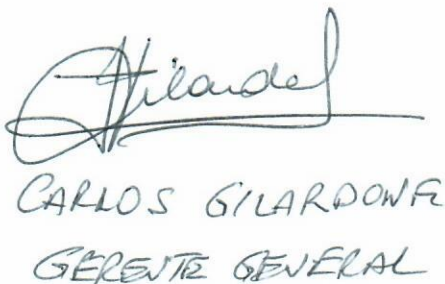 CARLOS GILARDONE
GERENTE GENERAL